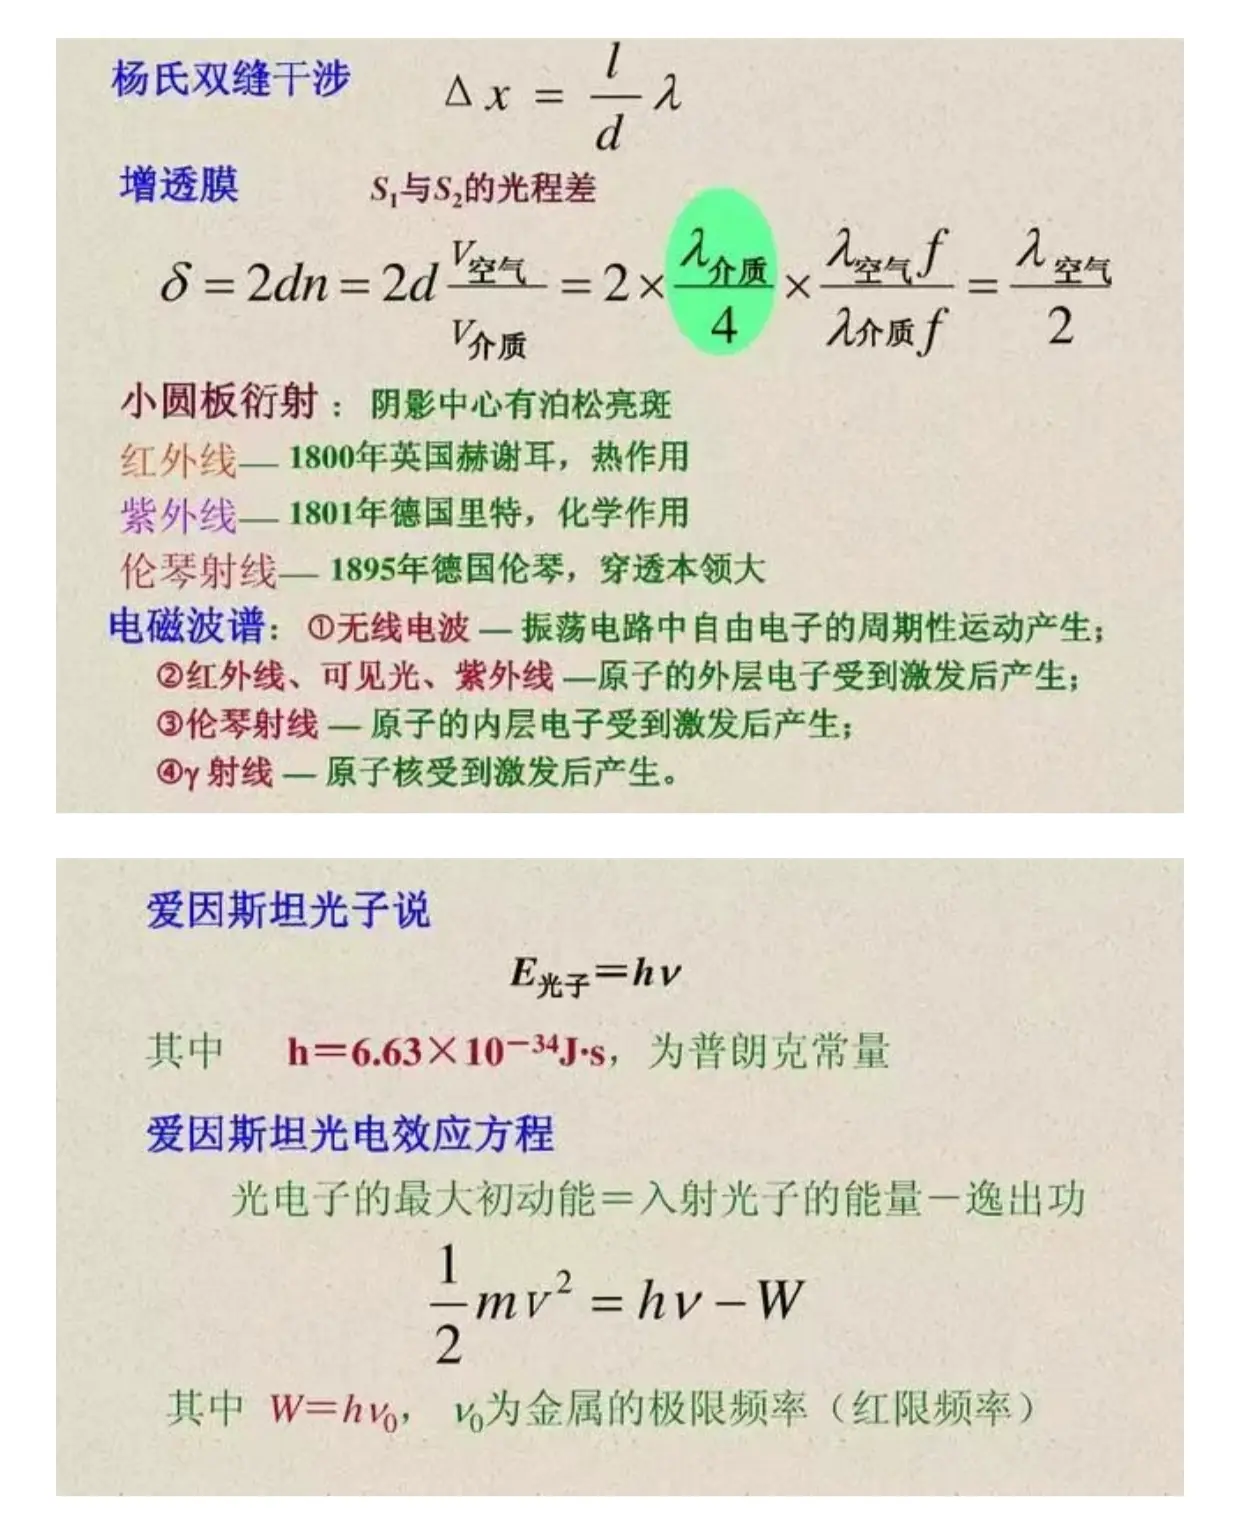 杨氏双缝干涉 Δx = l/d λ
增透膜 S₁与S₂的光程差
δ = 2dn = 2d V空气/V介质 = 2 × λ介质/4 × λ空气f/λ介质f = λ空气/2
小圆板衍射：阴影中心有泊松亮斑
红外线— 1800年英国赫谢耳，热作用
紫外线— 1801年德国里特，化学作用
伦琴射线— 1895年德国伦琴，穿透本领大
电磁波谱：①无线电波 — 振荡电路中自由电子的周期性运动产生；
②红外线、可见光、紫外线 —原子的外层电子受到激发后产生；
③伦琴射线 — 原子的内层电子受到激发后产生；
④γ 射线 — 原子核受到激发后产生。
爱因斯坦光子说
E光子＝hν
其中 h＝6.63×10⁻³⁴J·s，为普朗克常量
爱因斯坦光电效应方程
光电子的最大初动能＝入射光子的能量－逸出功
1/2 mv² = hν − W
其中 W＝hν₀， ν₀为金属的极限频率（红限频率）